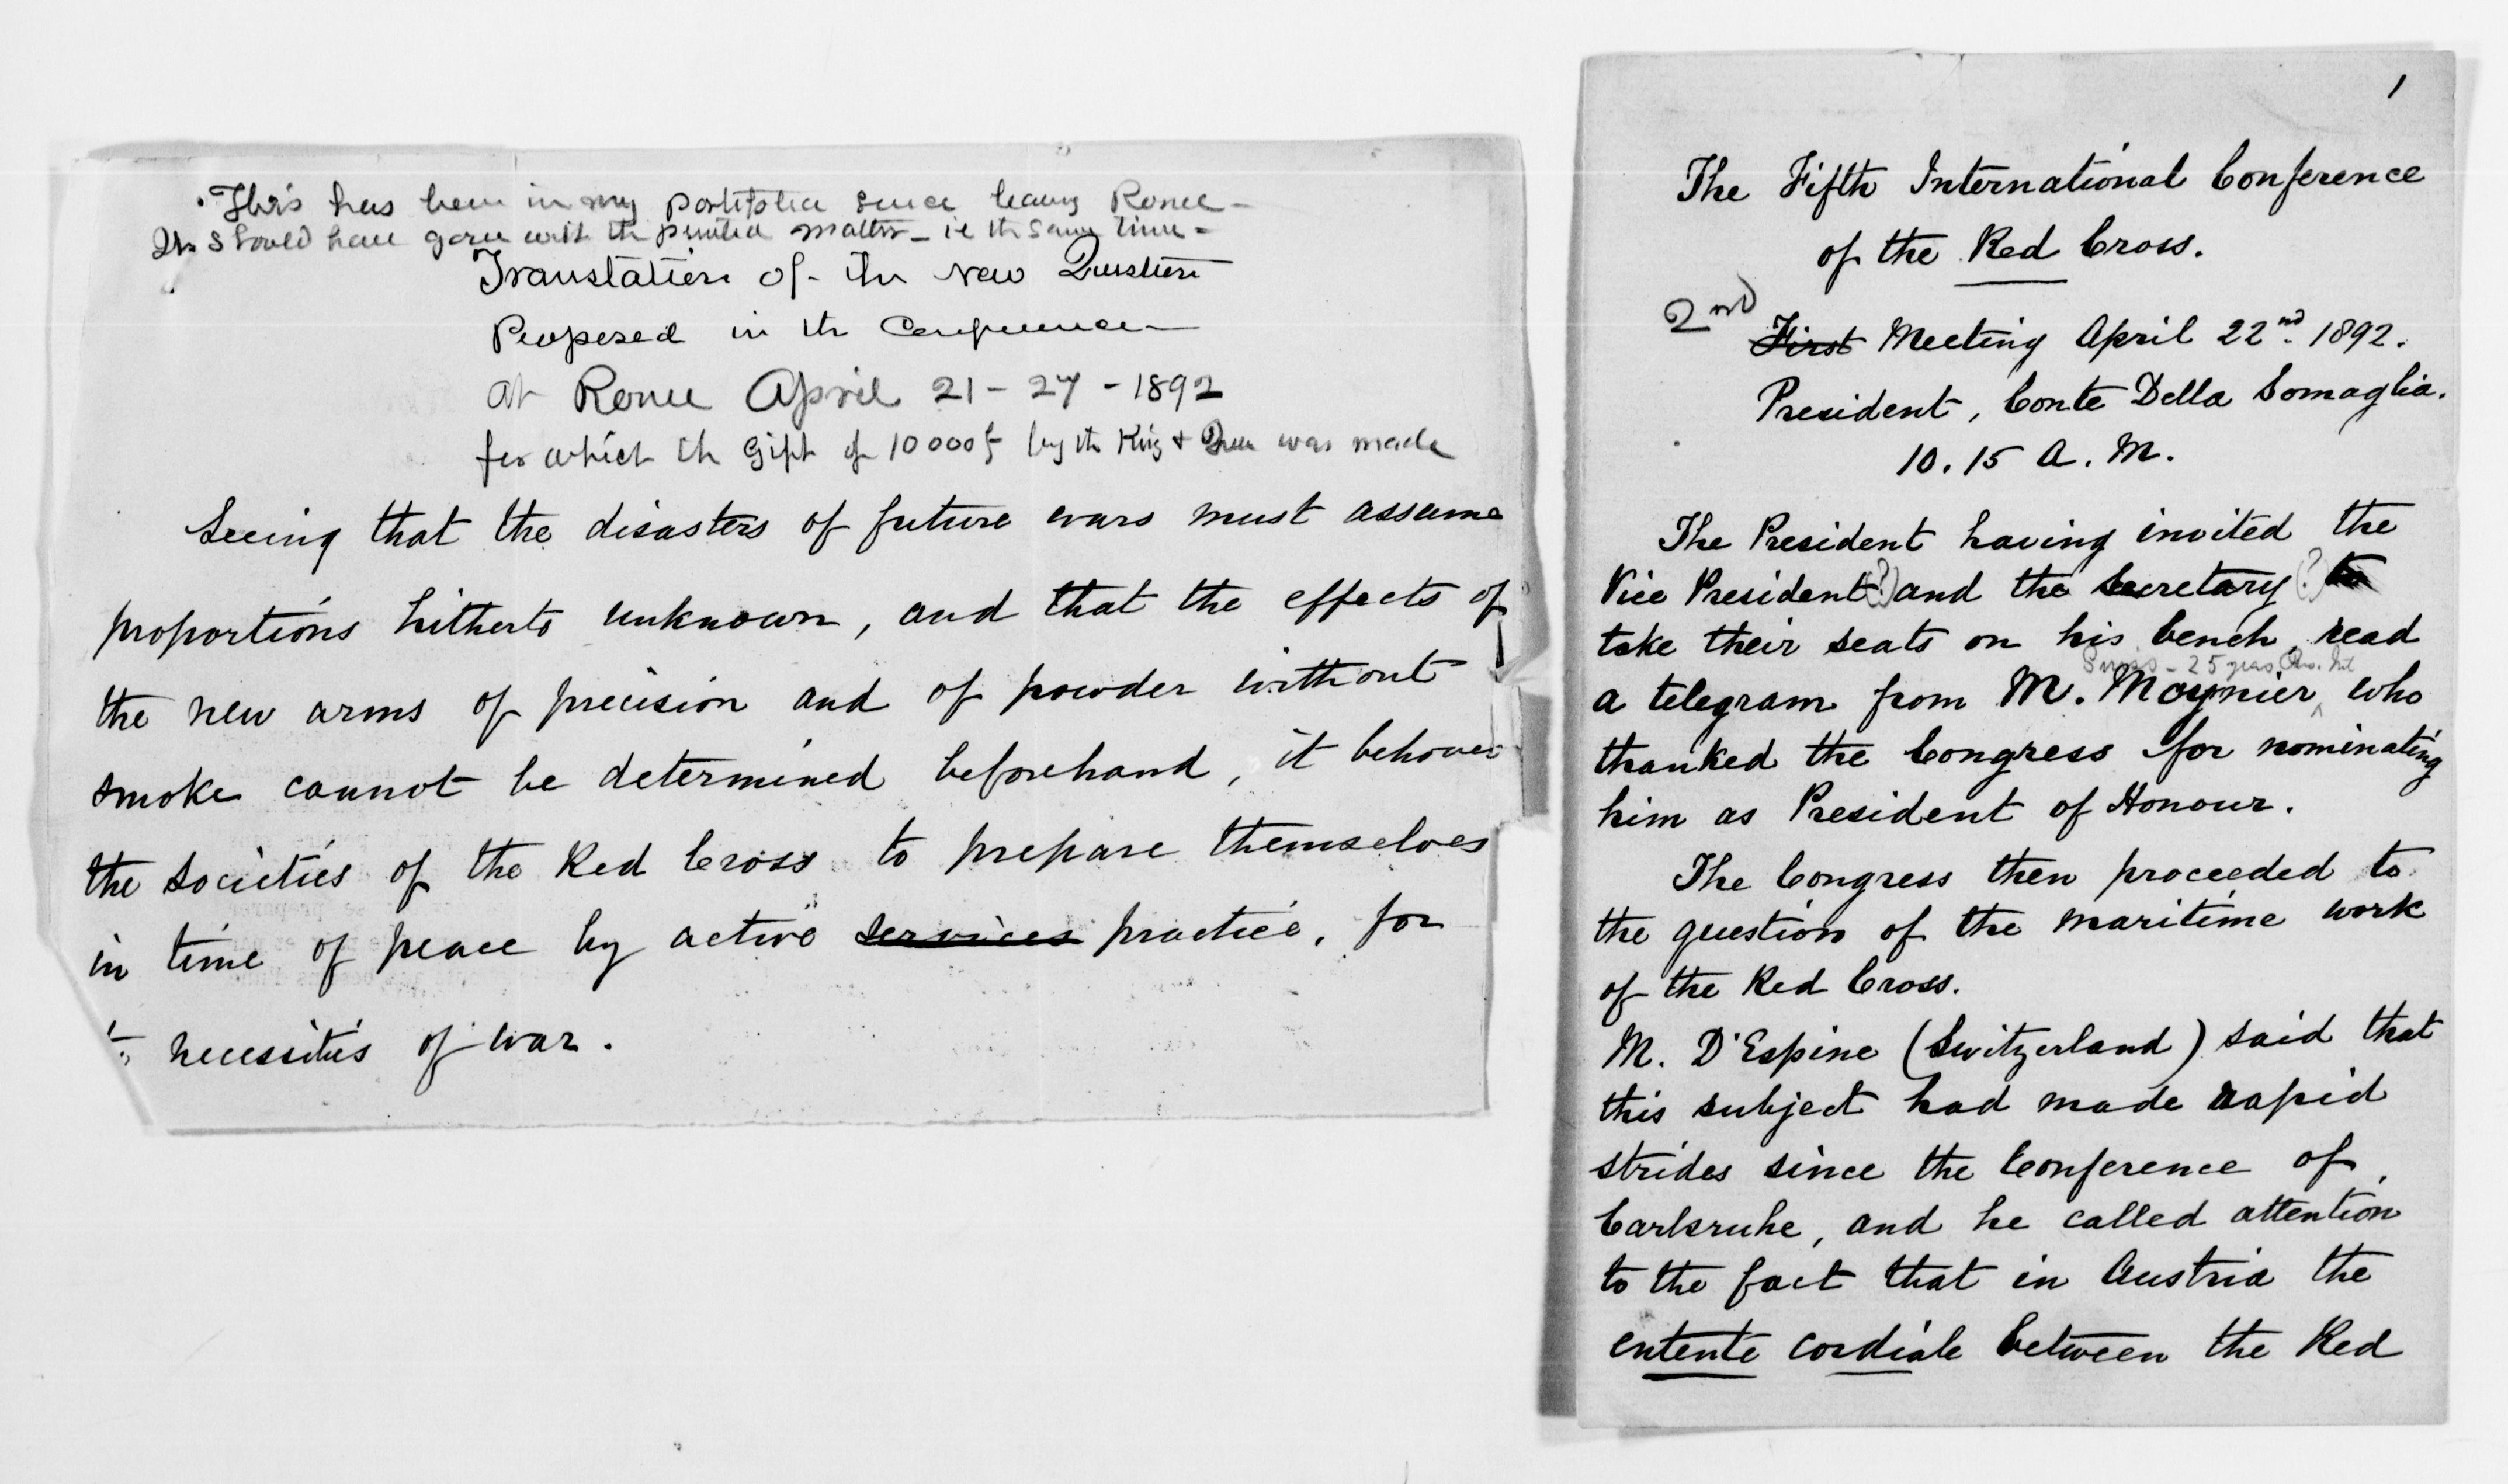 This has been in my portfolio since leaving Rome –
It should have gone with the printed matter – i.e. the same time –
Translation of the New Question
Proposed in the Conference
at Rome April 21 – 27 – 1892
for which the Gift of 10000 f by the King & Queen was made
Seeing that the disasters of future wars must assume
proportions hitherto unknown, and that the effects of
the new arms of precision and of powder without
smoke cannot be determined beforehand, it behoves
the societies of the Red Cross to prepare themselves
in time of peace by active services practice, for
necessities of war.
1
The Fifth International Conference
of the Red Cross.
2nd
First Meeting April 22nd. 1892.
President, Conte Della Somaglia.
10.15 A.M.
The President having invited the
Vice President (?) and the Secretary (?) to
take their seats on his bench, read
Swiss – 25 years
a telegram from M. Moynier, who
thanked the Congress for nominating
him as President of Honour.
The Congress then proceeded to
the question of the maritime work
of the Red Cross.
M. D'Espine (Switzerland) said that
this subject had made rapid
strides since the Conference of
Carlsruhe, and he called attention
to the fact that in Austria the
entente cordiale between the Red